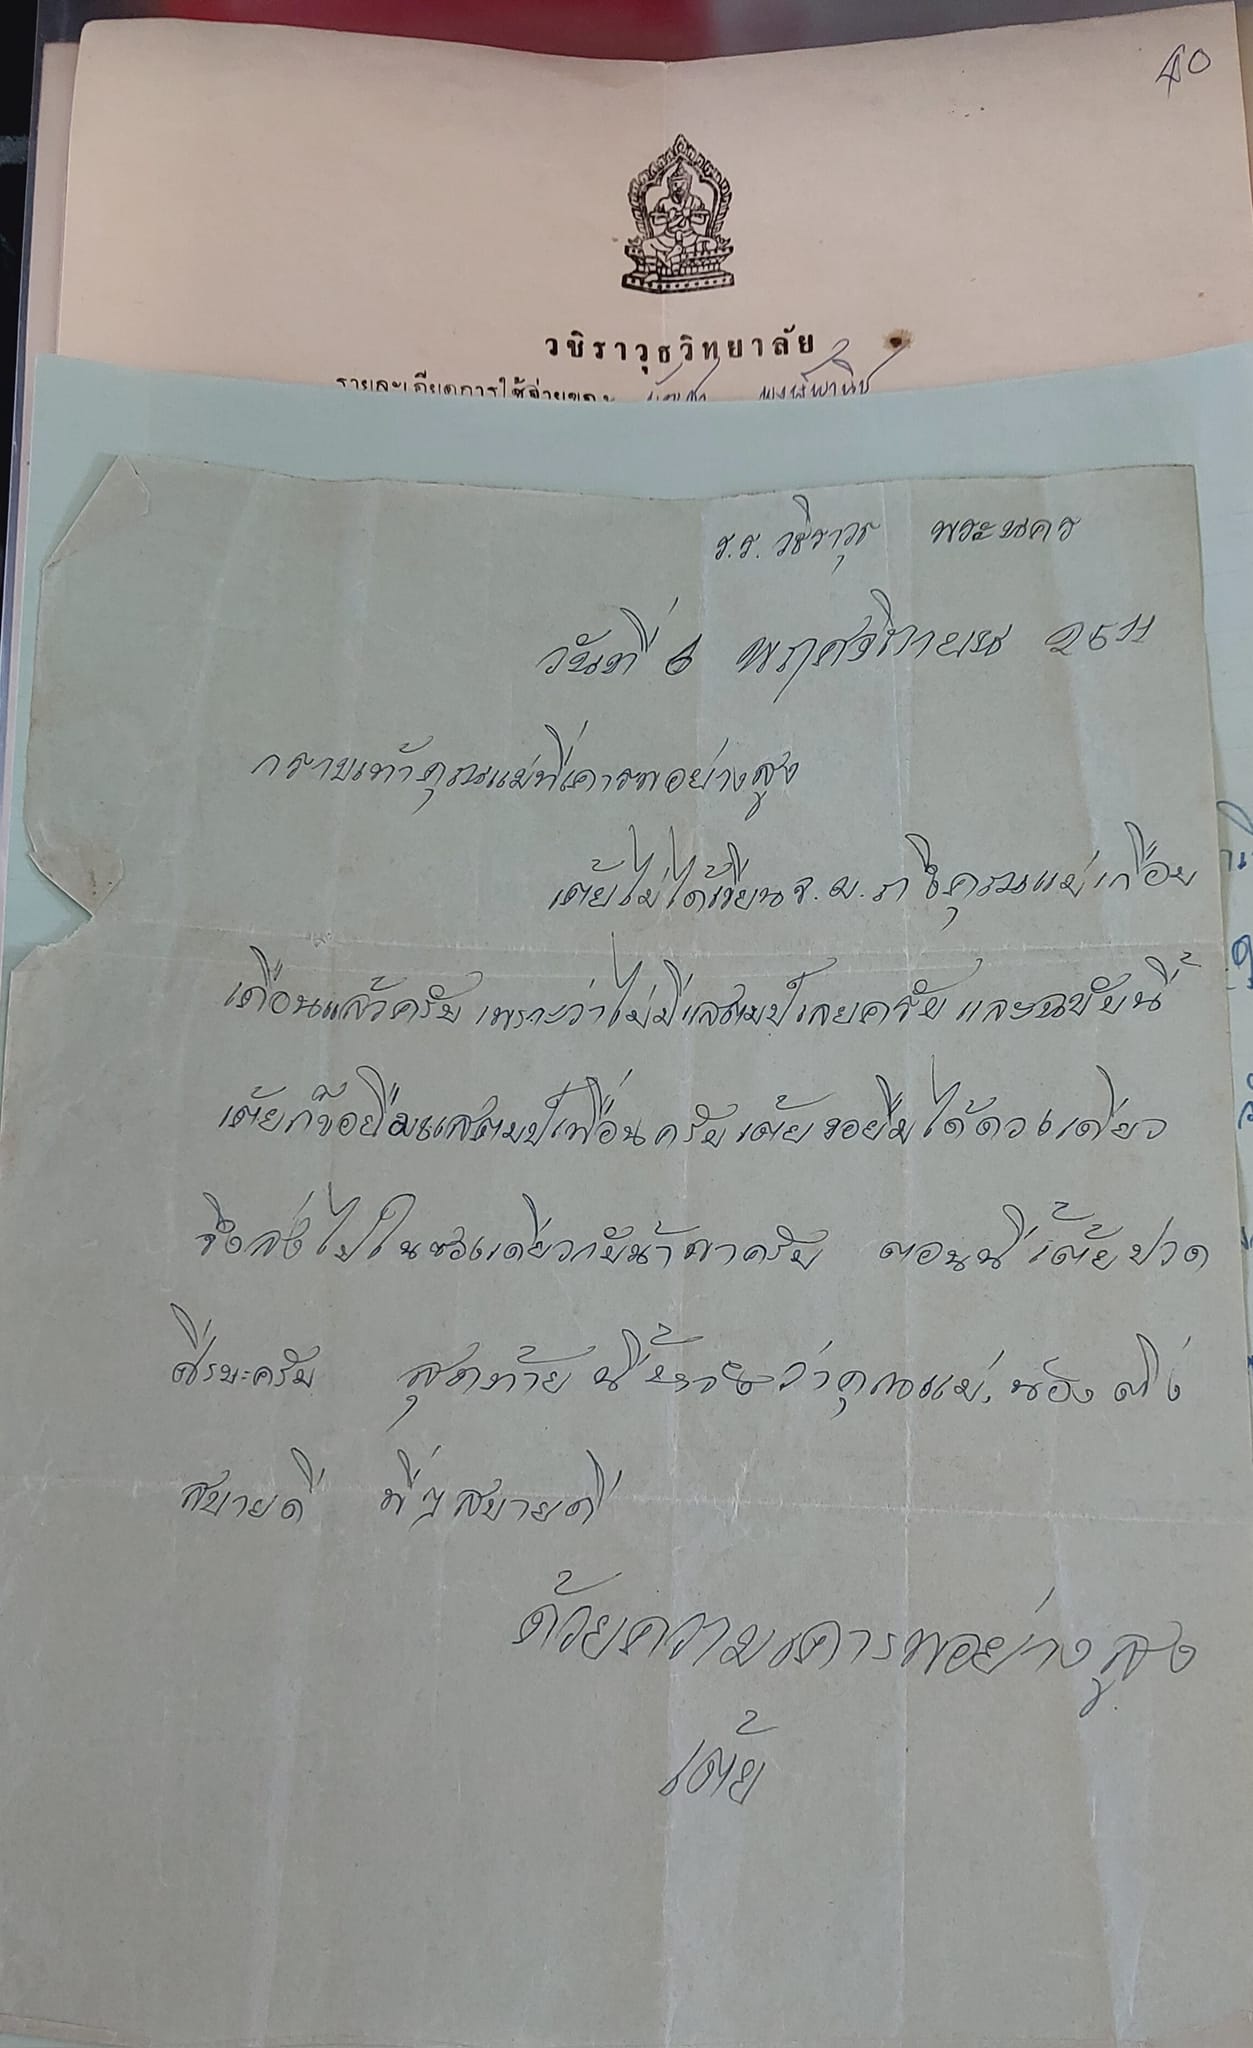 40
วชิราวุธวิทยาลัย
รายละเอียดการใช้จ่ายของ
ร.ร. วชิราวุธ พระนคร
วันที่ 6 พฤศจิกายน 2511
กราบเท้าคุณแม่ที่เคารพอย่างสูง
เต้ยไม่ได้เขียน จ.ม. ถึงคุณแม่เกือบ
เดือนแล้วครับ เพราะว่าไม่มีแสตมป์เลยครับ และฉบับนี้
เต้ยก็ขอยืมแสตมป์เพื่อนครับ เต้ยขอยืมได้ดวงเดียว
จึงส่งไปในซองเดียวกับน้าพาครับ ตอนนี้เต้ยปวด
ศีรษะครับ สุดท้ายนี้หวังว่าคุณแม่, น้องติ่ง
สบายดี พี่ๆ สบายดี
ด้วยความเคารพอย่างสูง
เต้ย